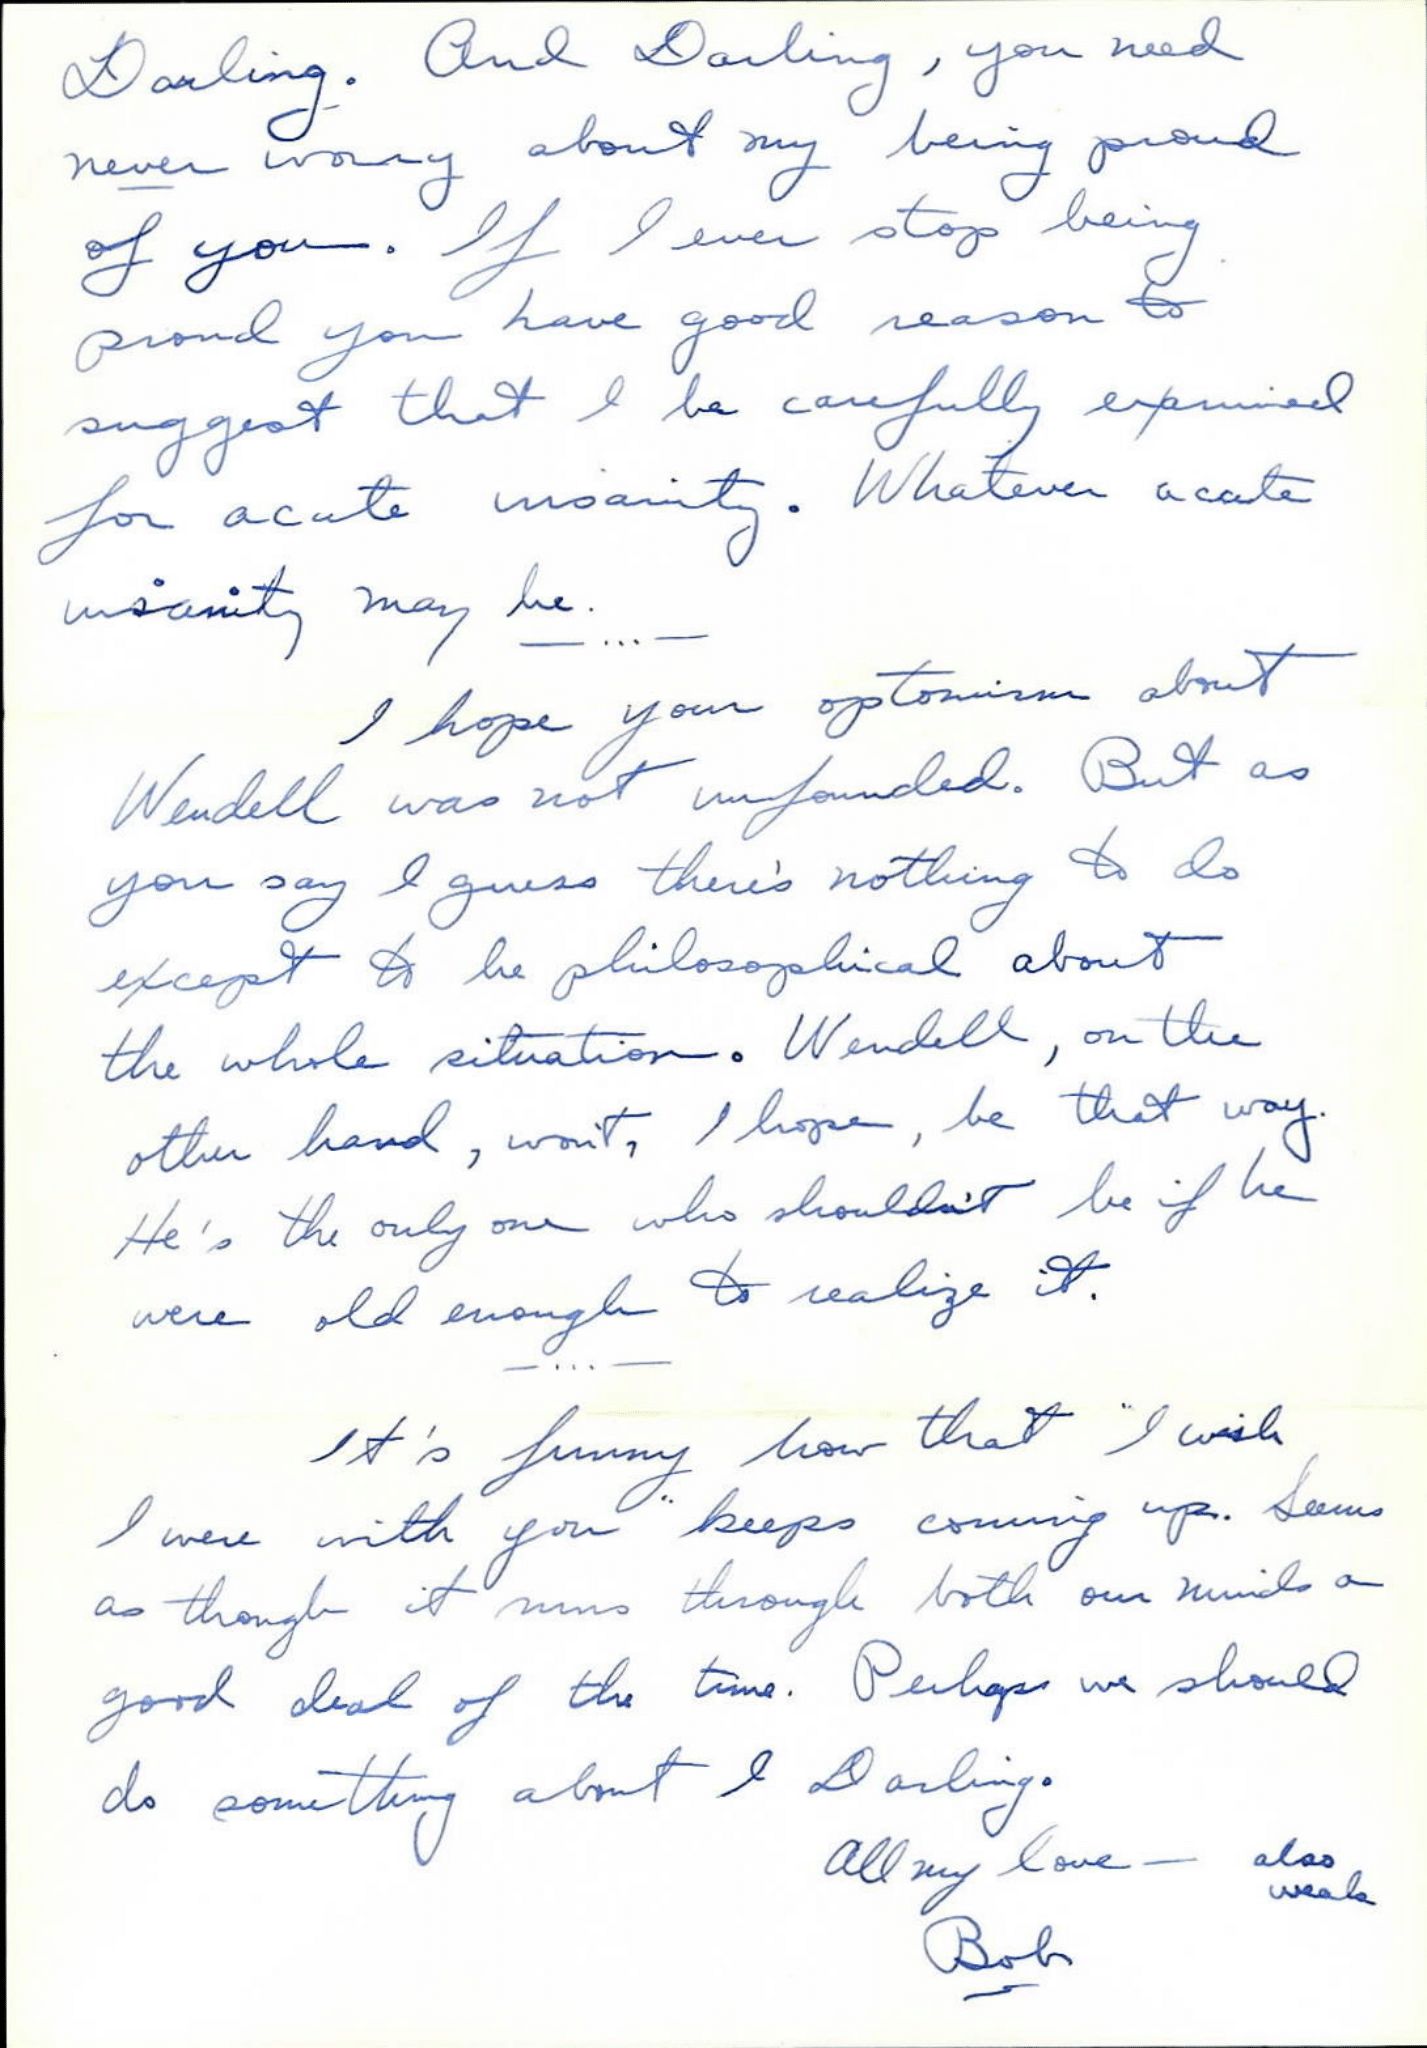 Darling. And Darling, you need
never worry about my being proud
of you. If I ever stop being
proud you have good reason to
suggest that I be carefully examined
for acute insanity. Whatever acute
insanity may be.
— ... —
I hope your optomism about
Wendell was not unfounded. But as
you say I guess there's nothing to do
except to be philosophical about
the whole situation. Wendell, on the
other hand, won't, I hope, be that way.
He's the only one who shouldn't be if he
were old enough to realize it.
— ... —
It's funny how that "I wish
I were with you" keeps coming up. Seems
as though it runs through both our minds a
good deal of the time. Perhaps we should
do something about I Darling.
All my love — also
weak
Bob